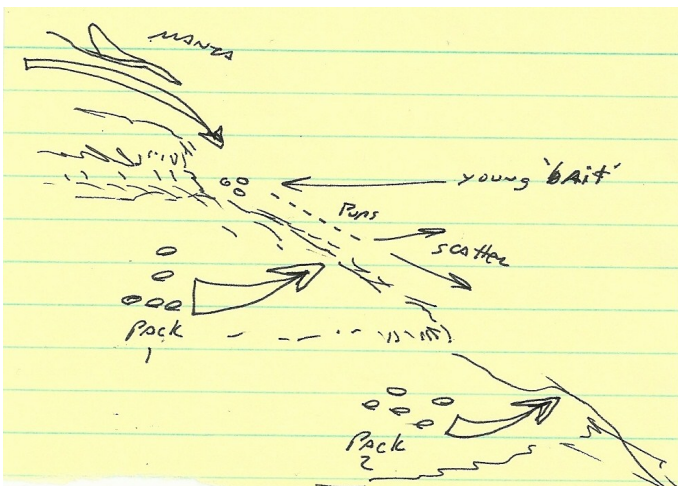 MANTA
young 'bAit'
Pups
scatter
PACK
1
PACK
2